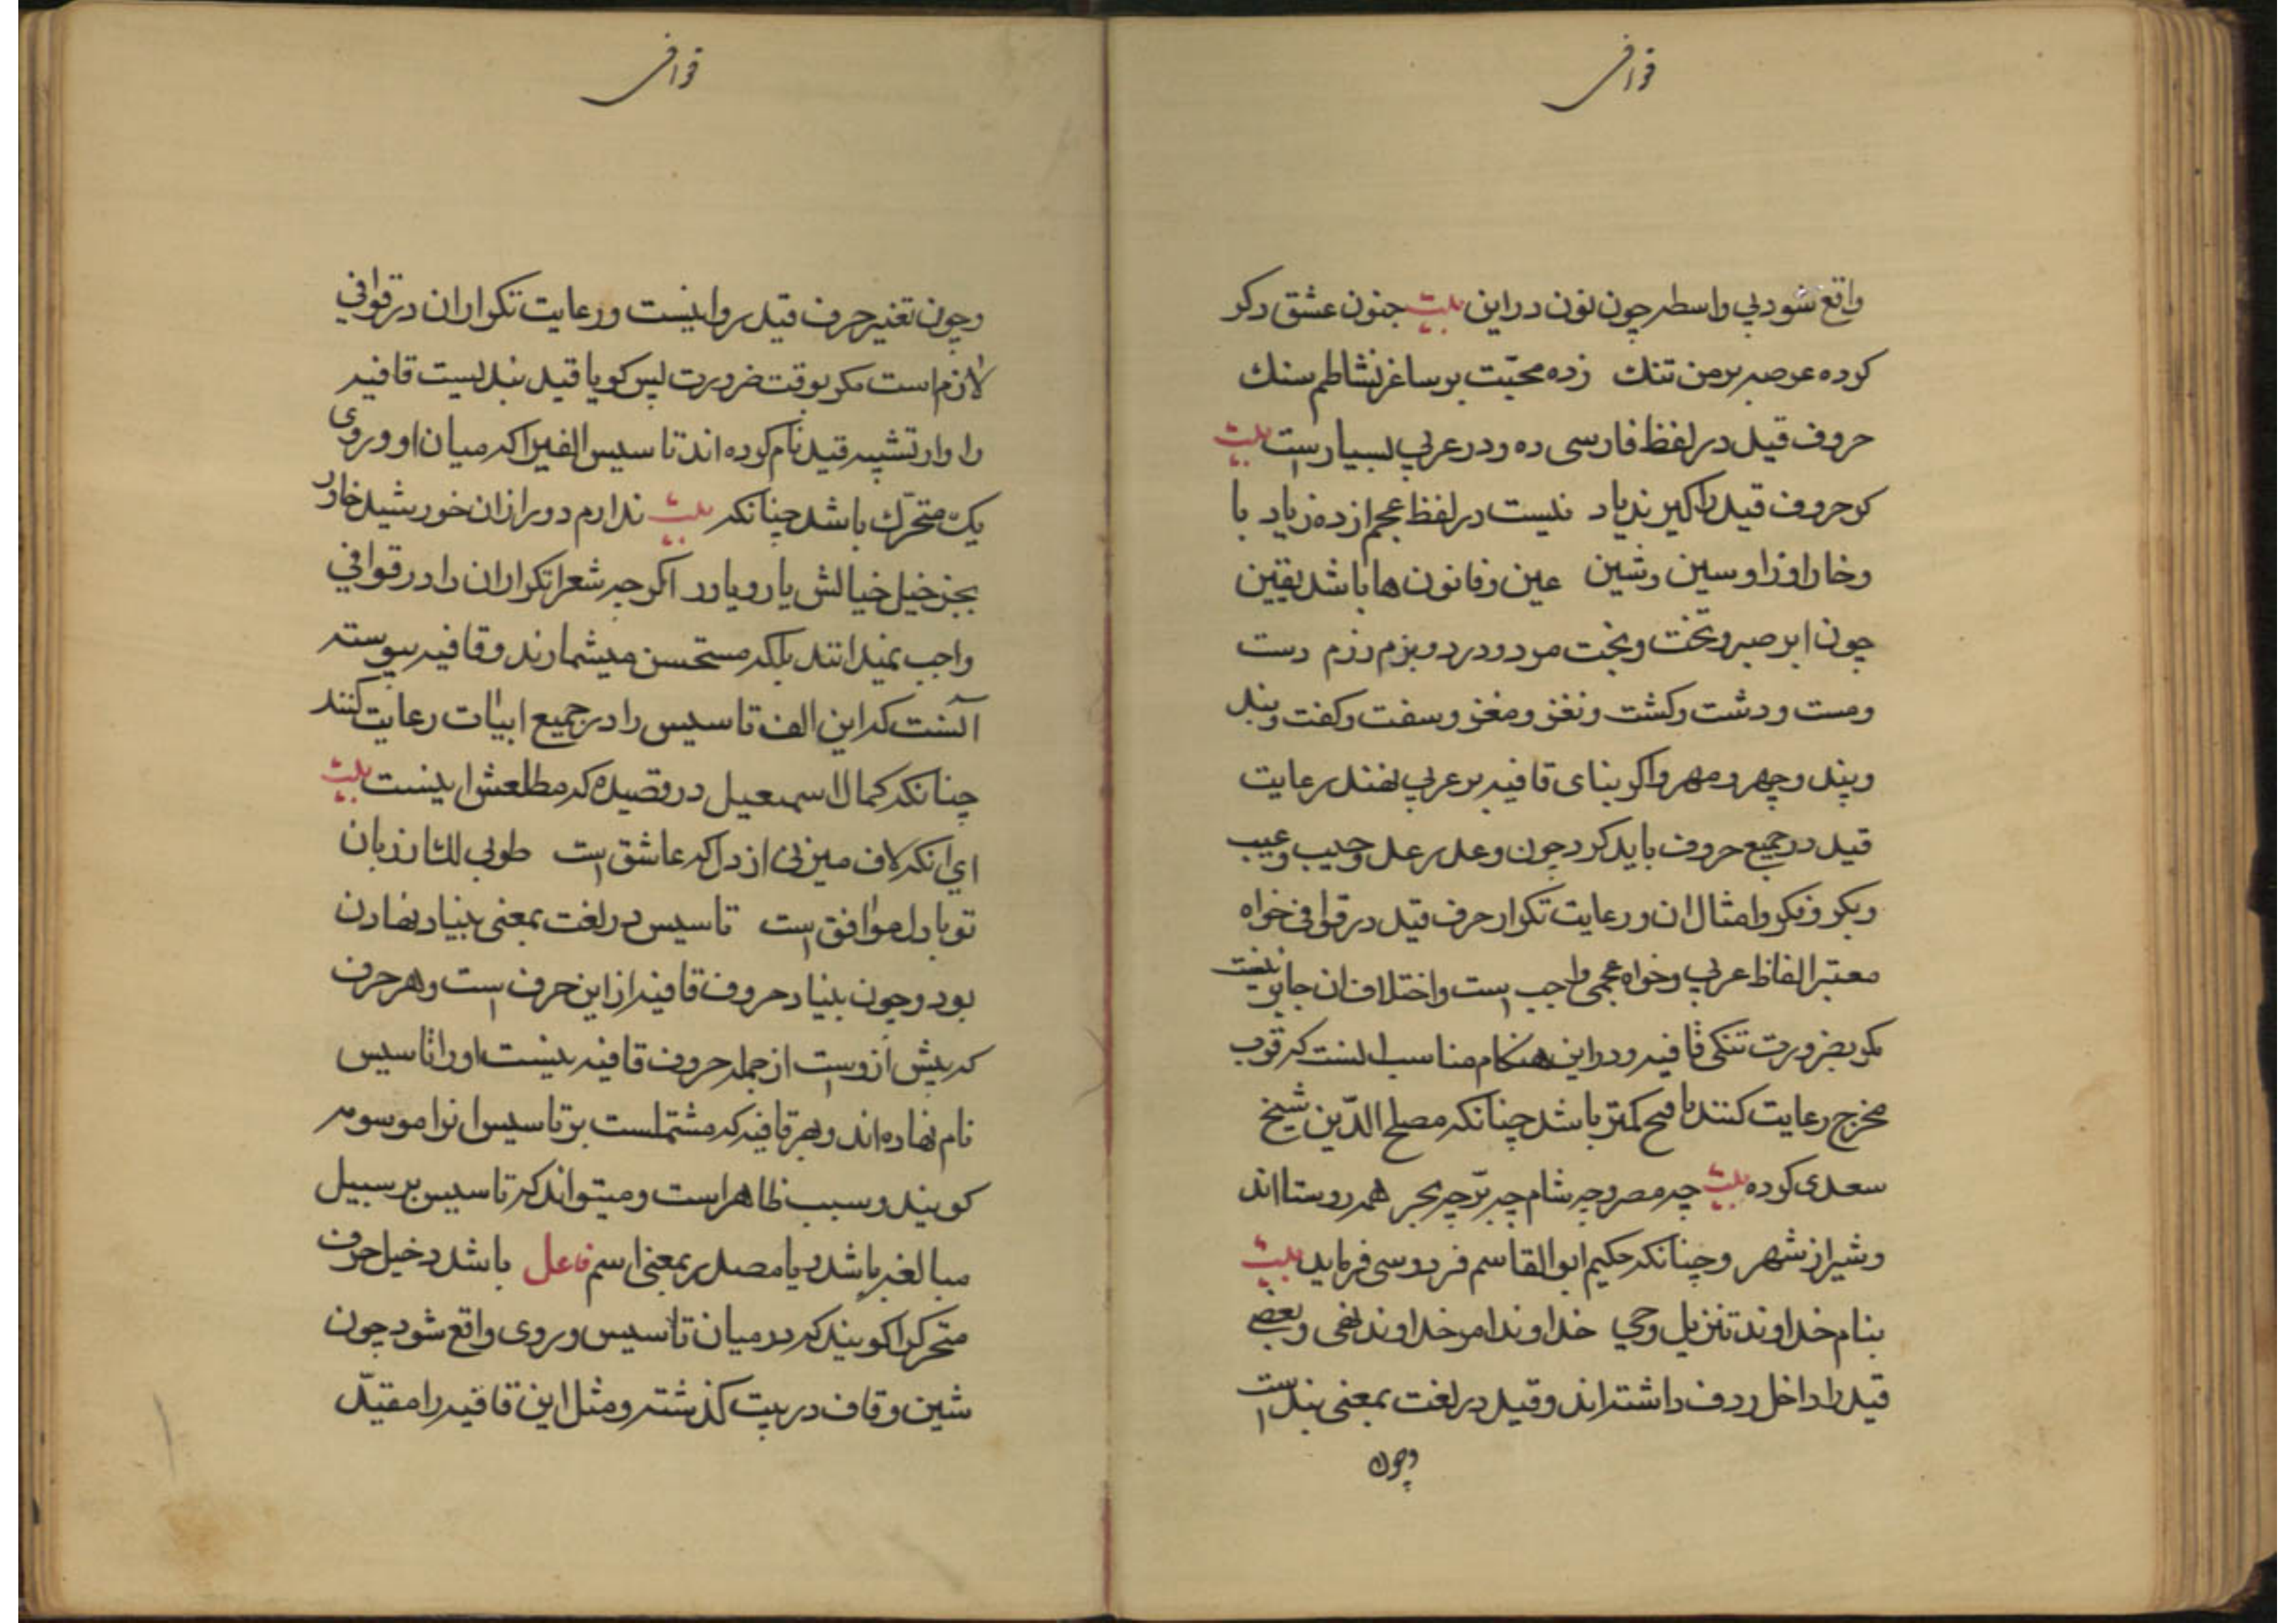 قوافی
واقع شود بي واسطه چون نون دراین بیت جنون عشق دکر
کرده عرصه برمن تنك زده محبّت بر ساغر نشاطم سنك
حروف قید در لفظ فارسی ده و در عربي بسیار است بیت
کر حروف قید را کیرند یاد نیست در لفظ عجم از ده زیاد با
وخا را وزا وسین وشین عین وفا نون ها باشد یقین
چون ابر صبر و تخت وبخت مرد ودرد و بزم رزم دست
ومست ودشت وکشت ونغز ومغز وسفت وکفت وبند
وپند وچهر ومهر واکر بنای قافیه بر عربي نهند رعایت
قید در جمیع حروف باید کرد چون وعد رعد وجیب وعیب
وبکر وفکر وامثال ان ورعایت تکرار حرف قید در قوافی خواه
معتبر الفاظ عربي وخواه عجمی واجب است واختلاف ان جایز نیست
مکر بضرورت تنکی قافیه ودراین هنکام مناسب انست که قرب
مخرج رعایت کنند تا قبح کمتر باشد چنانکه مصلح الدّین شیخ
سعدی کرده بیت چه مصر وچه شام چه برّ چه بحر همه روستااند
وشیراز شهر وچنانکه حکیم ابوالقاسم فردوسی فرماید بیت
بنام خداوند تنزیل وحي خداوند امر خداوند نهی وبعضی
قید را داخل ردف داشته اند وقید در لغت بمعنی بند است
وچون
قوافی
وچون تغیر حرف قید روا نیست ورعایت تکرار ان در قوافي
لازم است مکر بوقت ضرورت پس کویا قید بندیست قافیه
را واز تشبیه قید نام کرده اند تاسیس الفیرا که میان او وروی
یك متحرّك باشد چنانکه بیت ندارم دور ازان خورشید خاور
بجز خیل خیالش یار ویاور اکرچه شعرا تکرار ان را در قوافي
واجب نمیدانند بلکه مستحسن میشمارند وقافیه پیوسته
آنست که این الف تاسیس را در جمیع ابیات رعایت کنند
چنانکه کمال اسمعیل در قصیده که مطلعش اینست بیت
اي انکه لاف میزني از دل که عاشق است طوبي لك ار زبان
تو با دل موافق است تاسیس در لغت بمعنی بنیاد نهادن
بود وچون بنیاد حروف قافیه از این حرف است وهر حرف
که پیش از وست از جمله حروف قافیه نیست اورا تاسیس
نام نهاده اند وهر قافیه که مشتملست بر تاسیس انرا موسوم
کویند وسبب ظاهر است ومیتواند که تاسیس بر سبیل
مبالغه باشد ویا مصدر بمعنی اسم فاعل باشد دخیل حرف
متحرکرا کویند که درمیان تاسیس وروی واقع شود چون
شین وقاف در بیت کذشته ومثل این قافیه را مقیّد